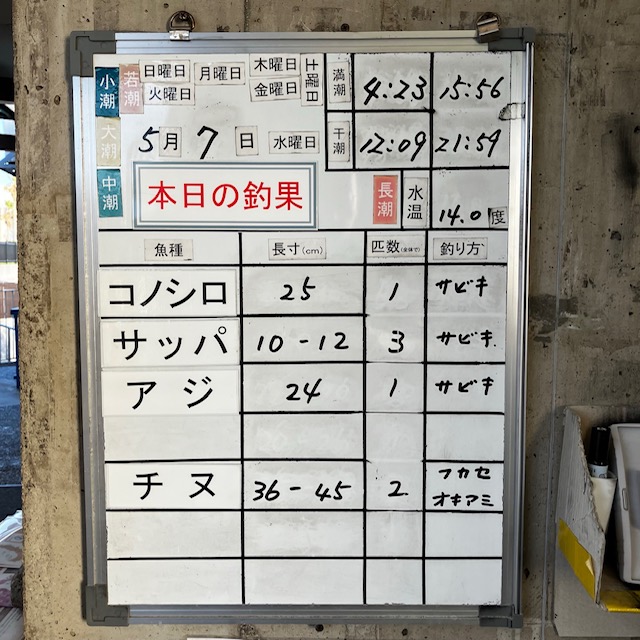 小潮 若潮 日曜日 月曜日 木曜日 土曜日 満潮 4:23 15:56
火曜日 金曜日
大潮 5月7日 水曜日 干潮 12:09 21:59
中潮 本日の釣果 長潮 水温 14.0度
魚種 長寸(cm) 匹数(全体で) 釣り方
コノシロ 25 1 サビキ
サッパ 10-12 3 サビキ
アジ 24 1 サビキ
チヌ 36-45 2 フカセ
オキアミ